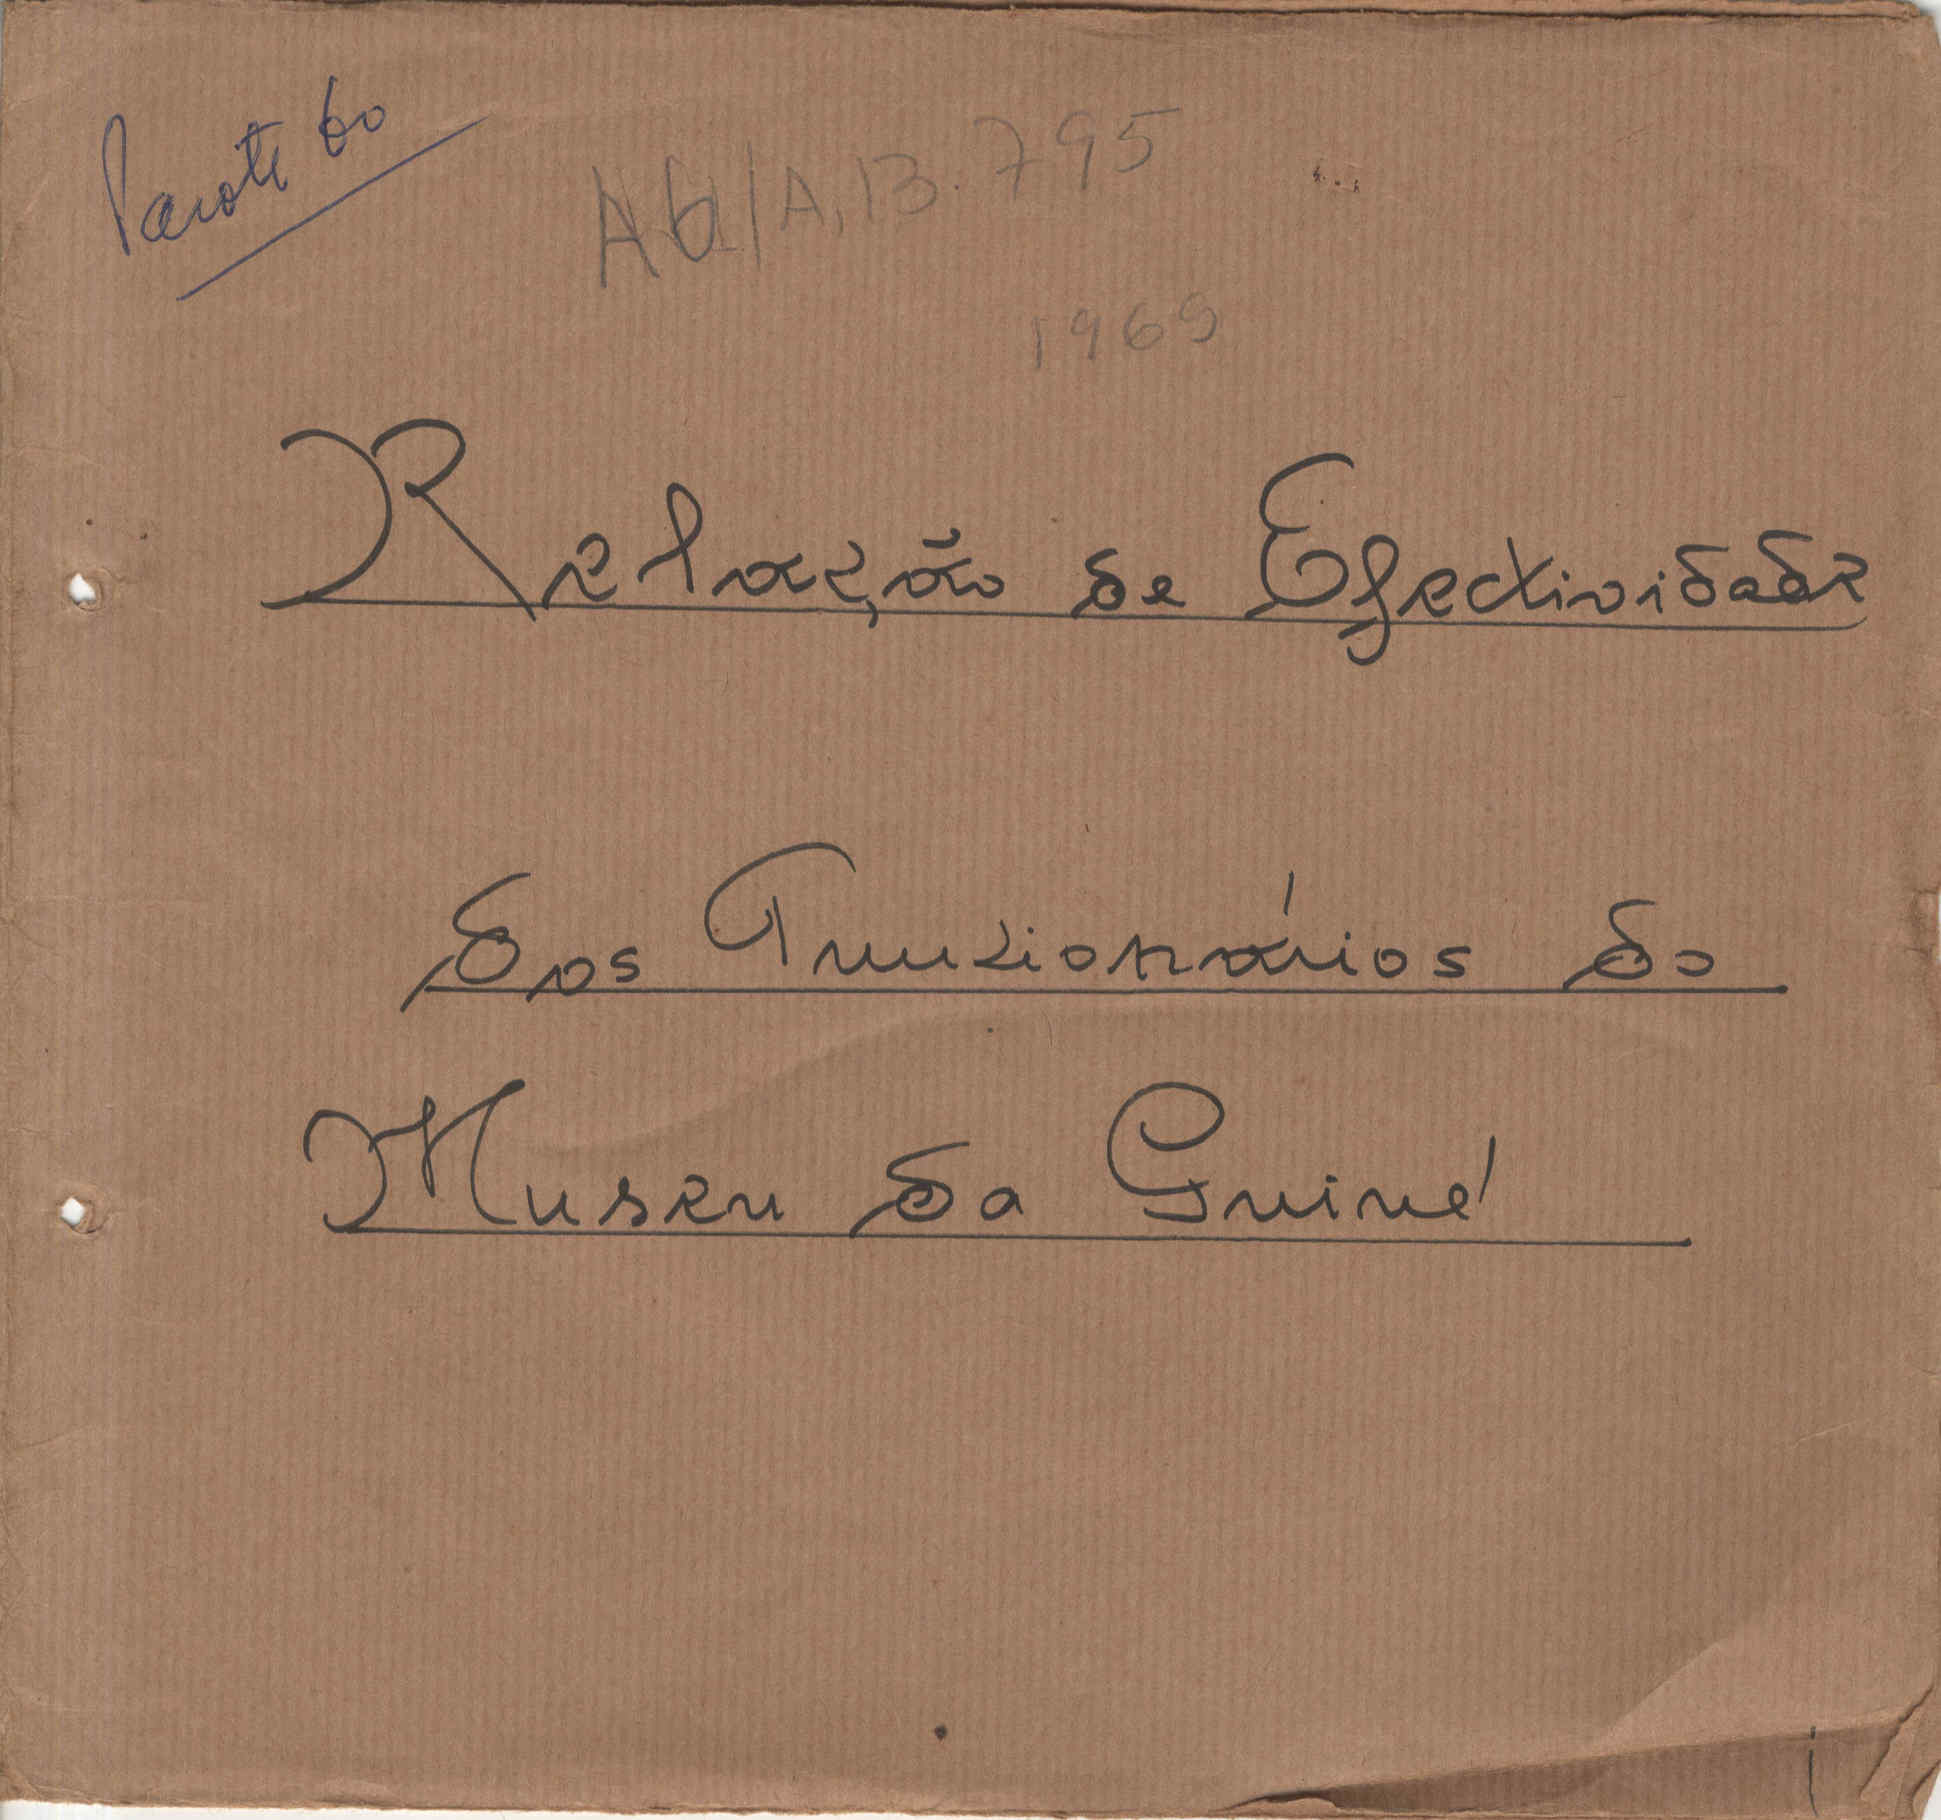 Pacote 60
A6/A,13.795
1969
Relação de Efectividade
dos Funcionários do
Museu da Guiné